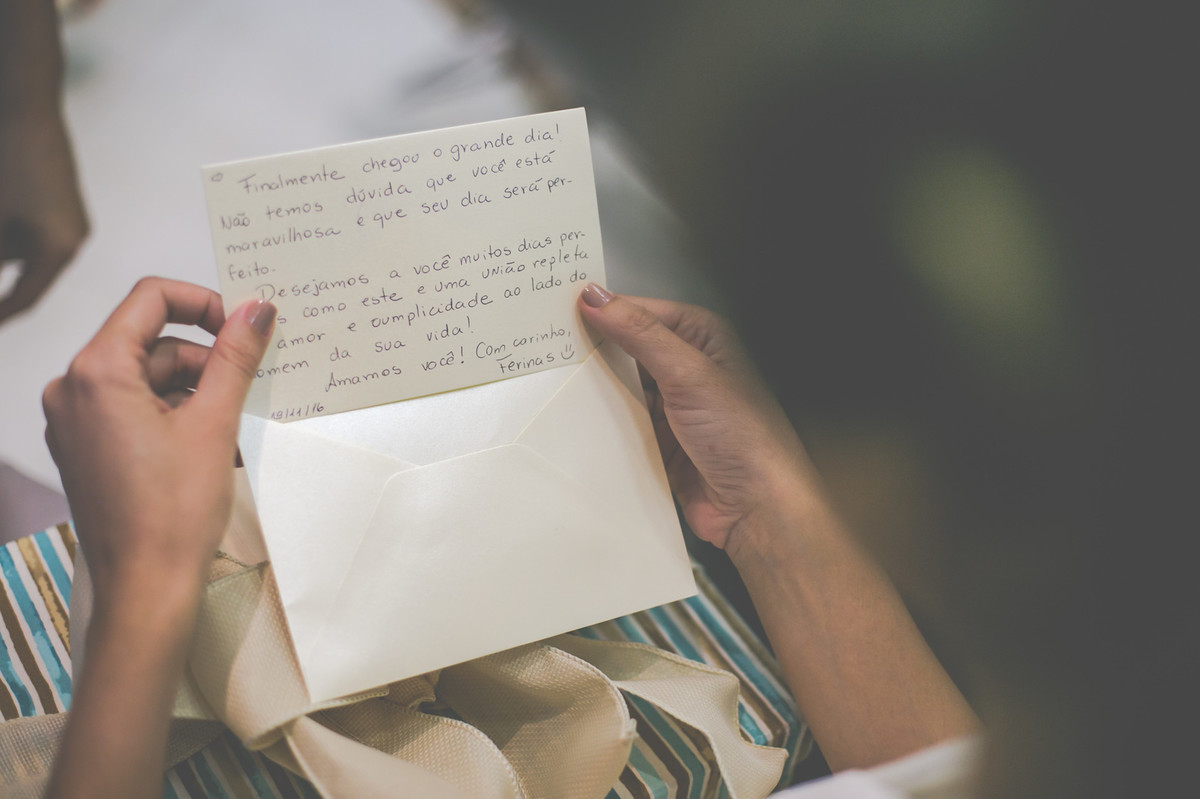 Finalmente chegou o grande dia!
Não temos dúvida que você está
maravilhosa e que seu dia será per-
feito.
Desejamos a você muitos dias per-
s como este e uma união repleta
amor e cumplicidade ao lado do
omem da sua vida!
Amamos você! Com carinho,
Ferinas
19/11/16